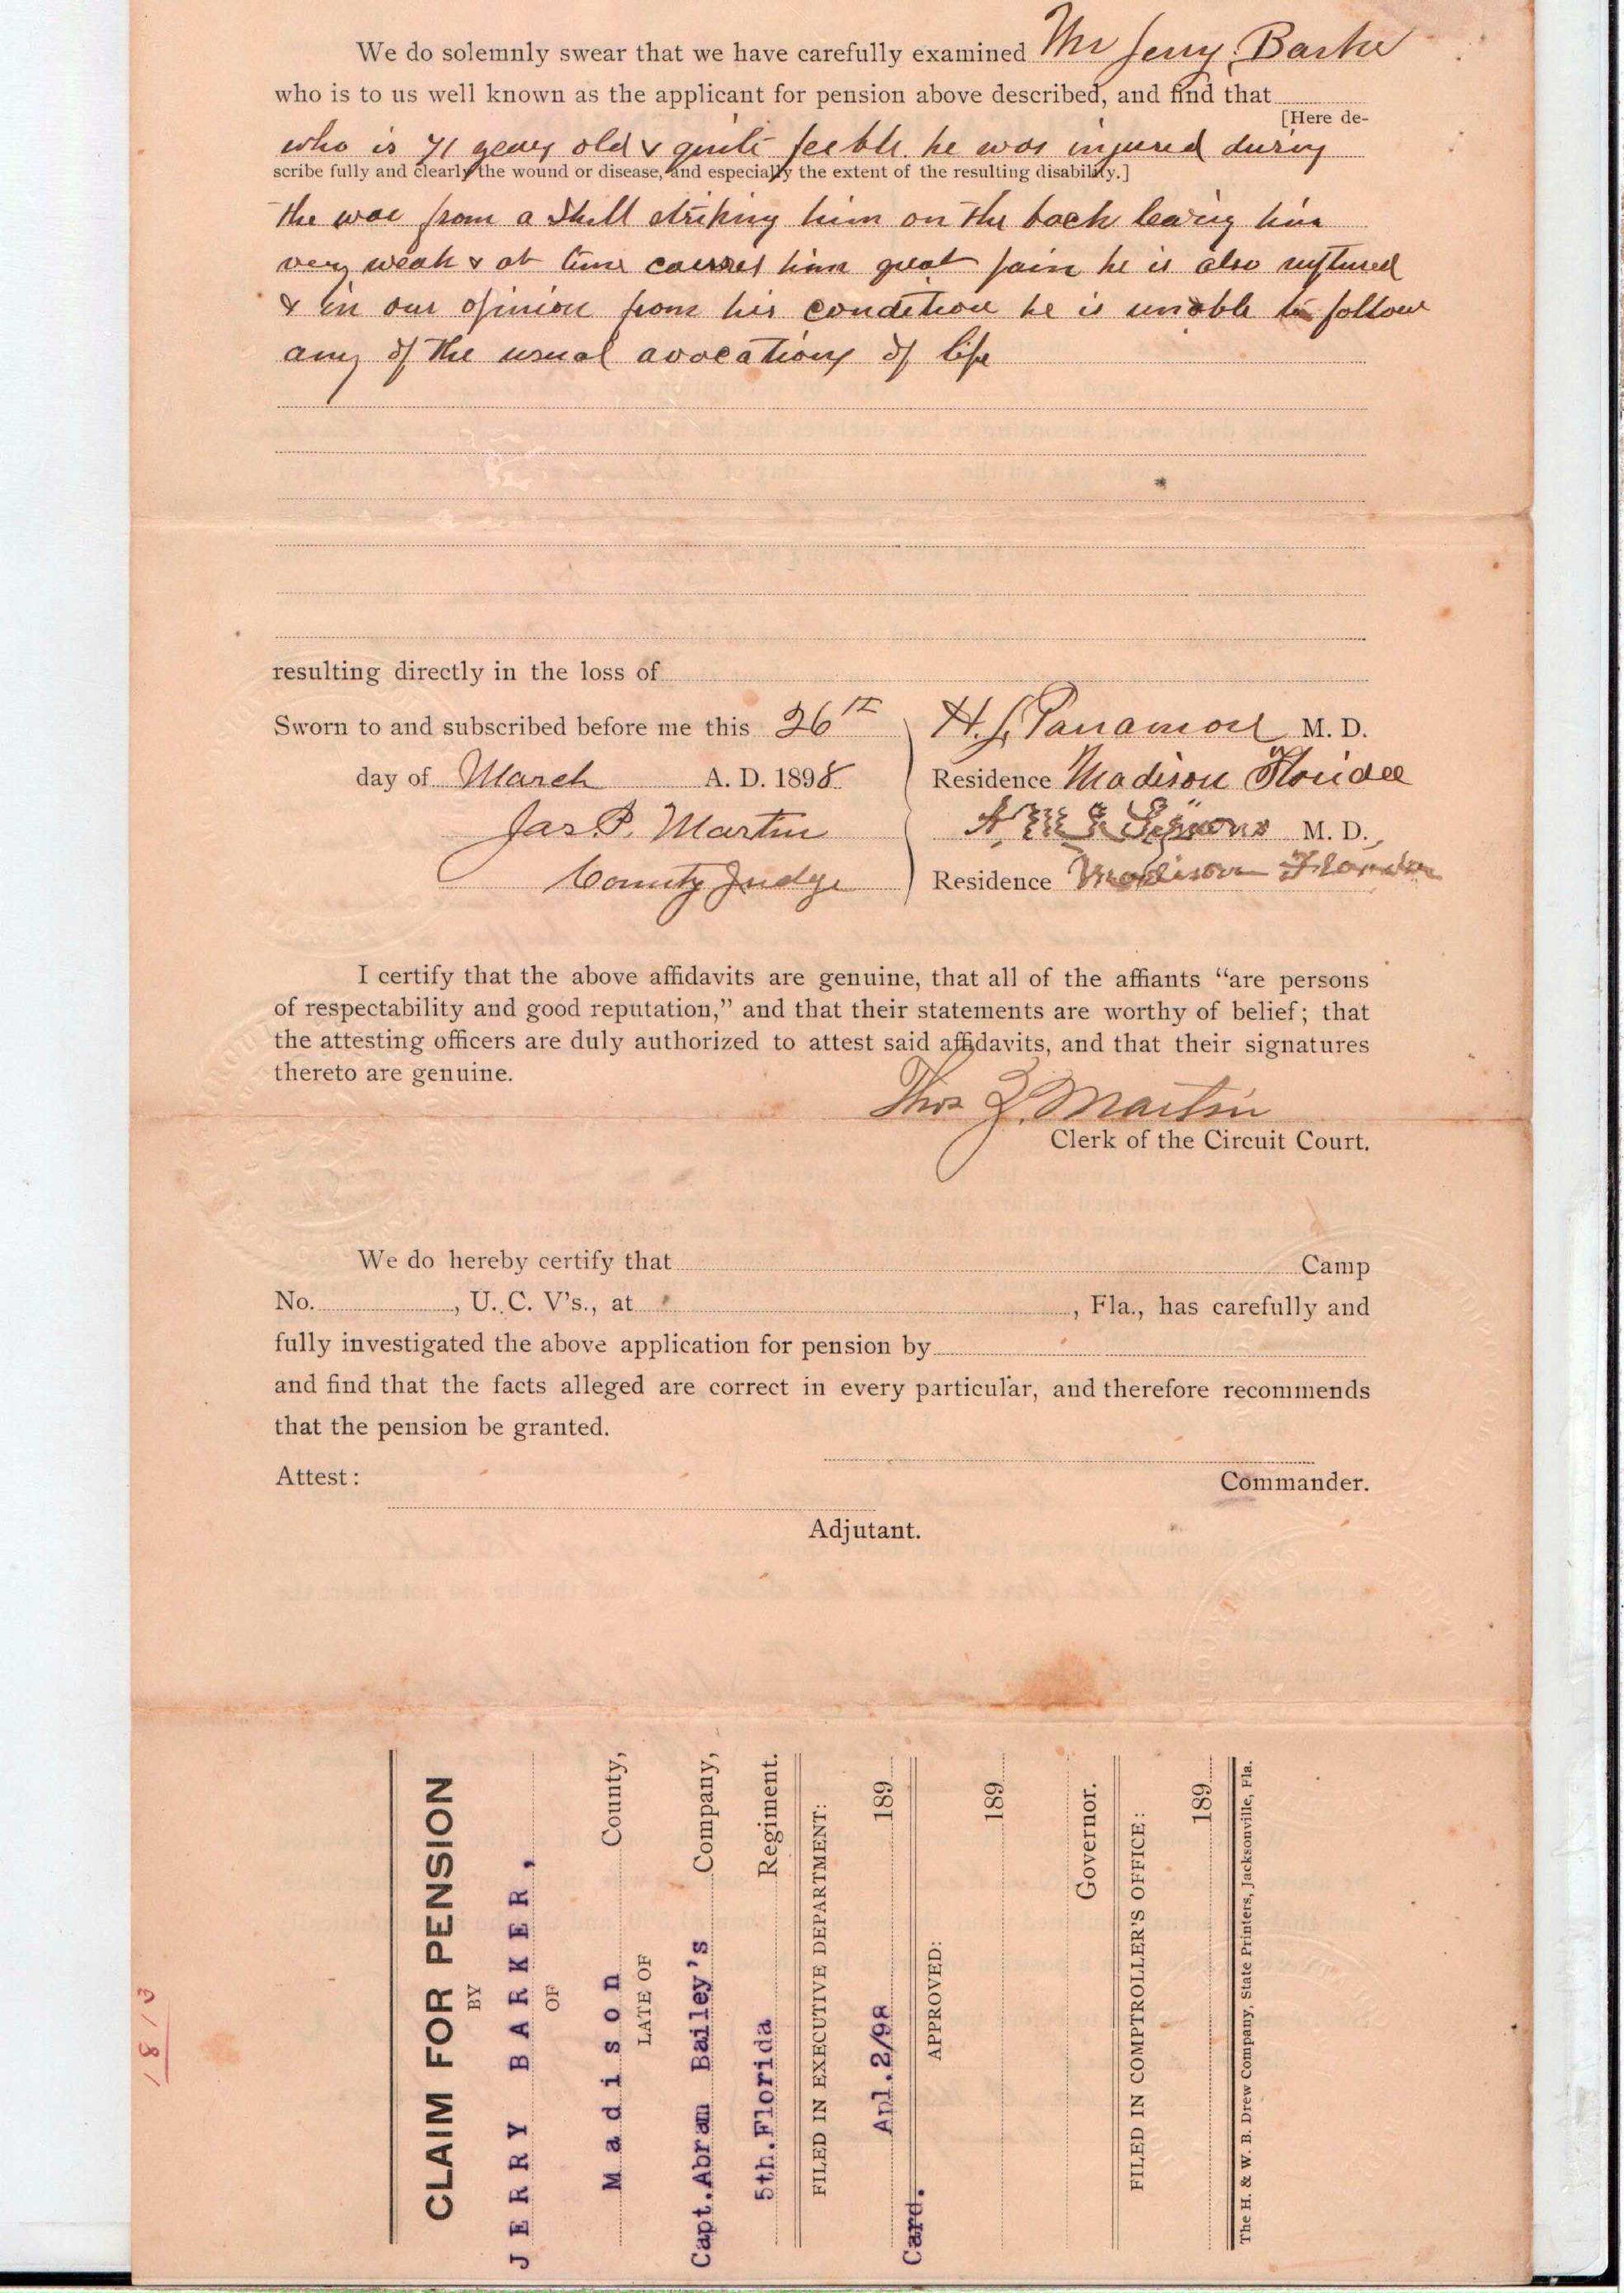 We do solemnly swear that we have carefully examined Mr Jerry Barker
who is to us well known as the applicant for pension above described, and find that
[Here de-
who is 71 years old & quite feeble. he was injured during
scribe fully and clearly the wound or disease, and especially the extent of the resulting disability.]
the war from a Shell striking him on the back leaving him
very weak & at time causes him great pain he is also ruptured
& in our opinion from his condition he is unable to follow
any of the usual avocations of life
resulting directly in the loss of
Sworn to and subscribed before me this 26th
H. M. D.
day of March A. D. 1898
Residence Madison Florida
Jas. P. Martin
M. D.
County Judge
Residence Madison Florida
I certify that the above affidavits are genuine, that all of the affiants “are persons
of respectability and good reputation,” and that their statements are worthy of belief; that
the attesting officers are duly authorized to attest said affidavits, and that their signatures
thereto are genuine.
Thos Z. Martin
Clerk of the Circuit Court.
We do hereby certify that Camp
No. , U. C. V's., at , Fla., has carefully and
fully investigated the above application for pension by
and find that the facts alleged are correct in every particular, and therefore recommends
that the pension be granted.
Attest:
Commander.
Adjutant.
CLAIM FOR PENSION
BY
JERRY BARKER,
OF
Madison County,
LATE OF
Capt. Abram Bailey's Company,
5th. Florida Regiment.
FILED IN EXECUTIVE DEPARTMENT:
Apl. 2/98 189
Card.
APPROVED:
189
Governor.
FILED IN COMPTROLLER'S OFFICE:
189
The H. & W. B. Drew Company, State Printers, Jacksonville, Fla.